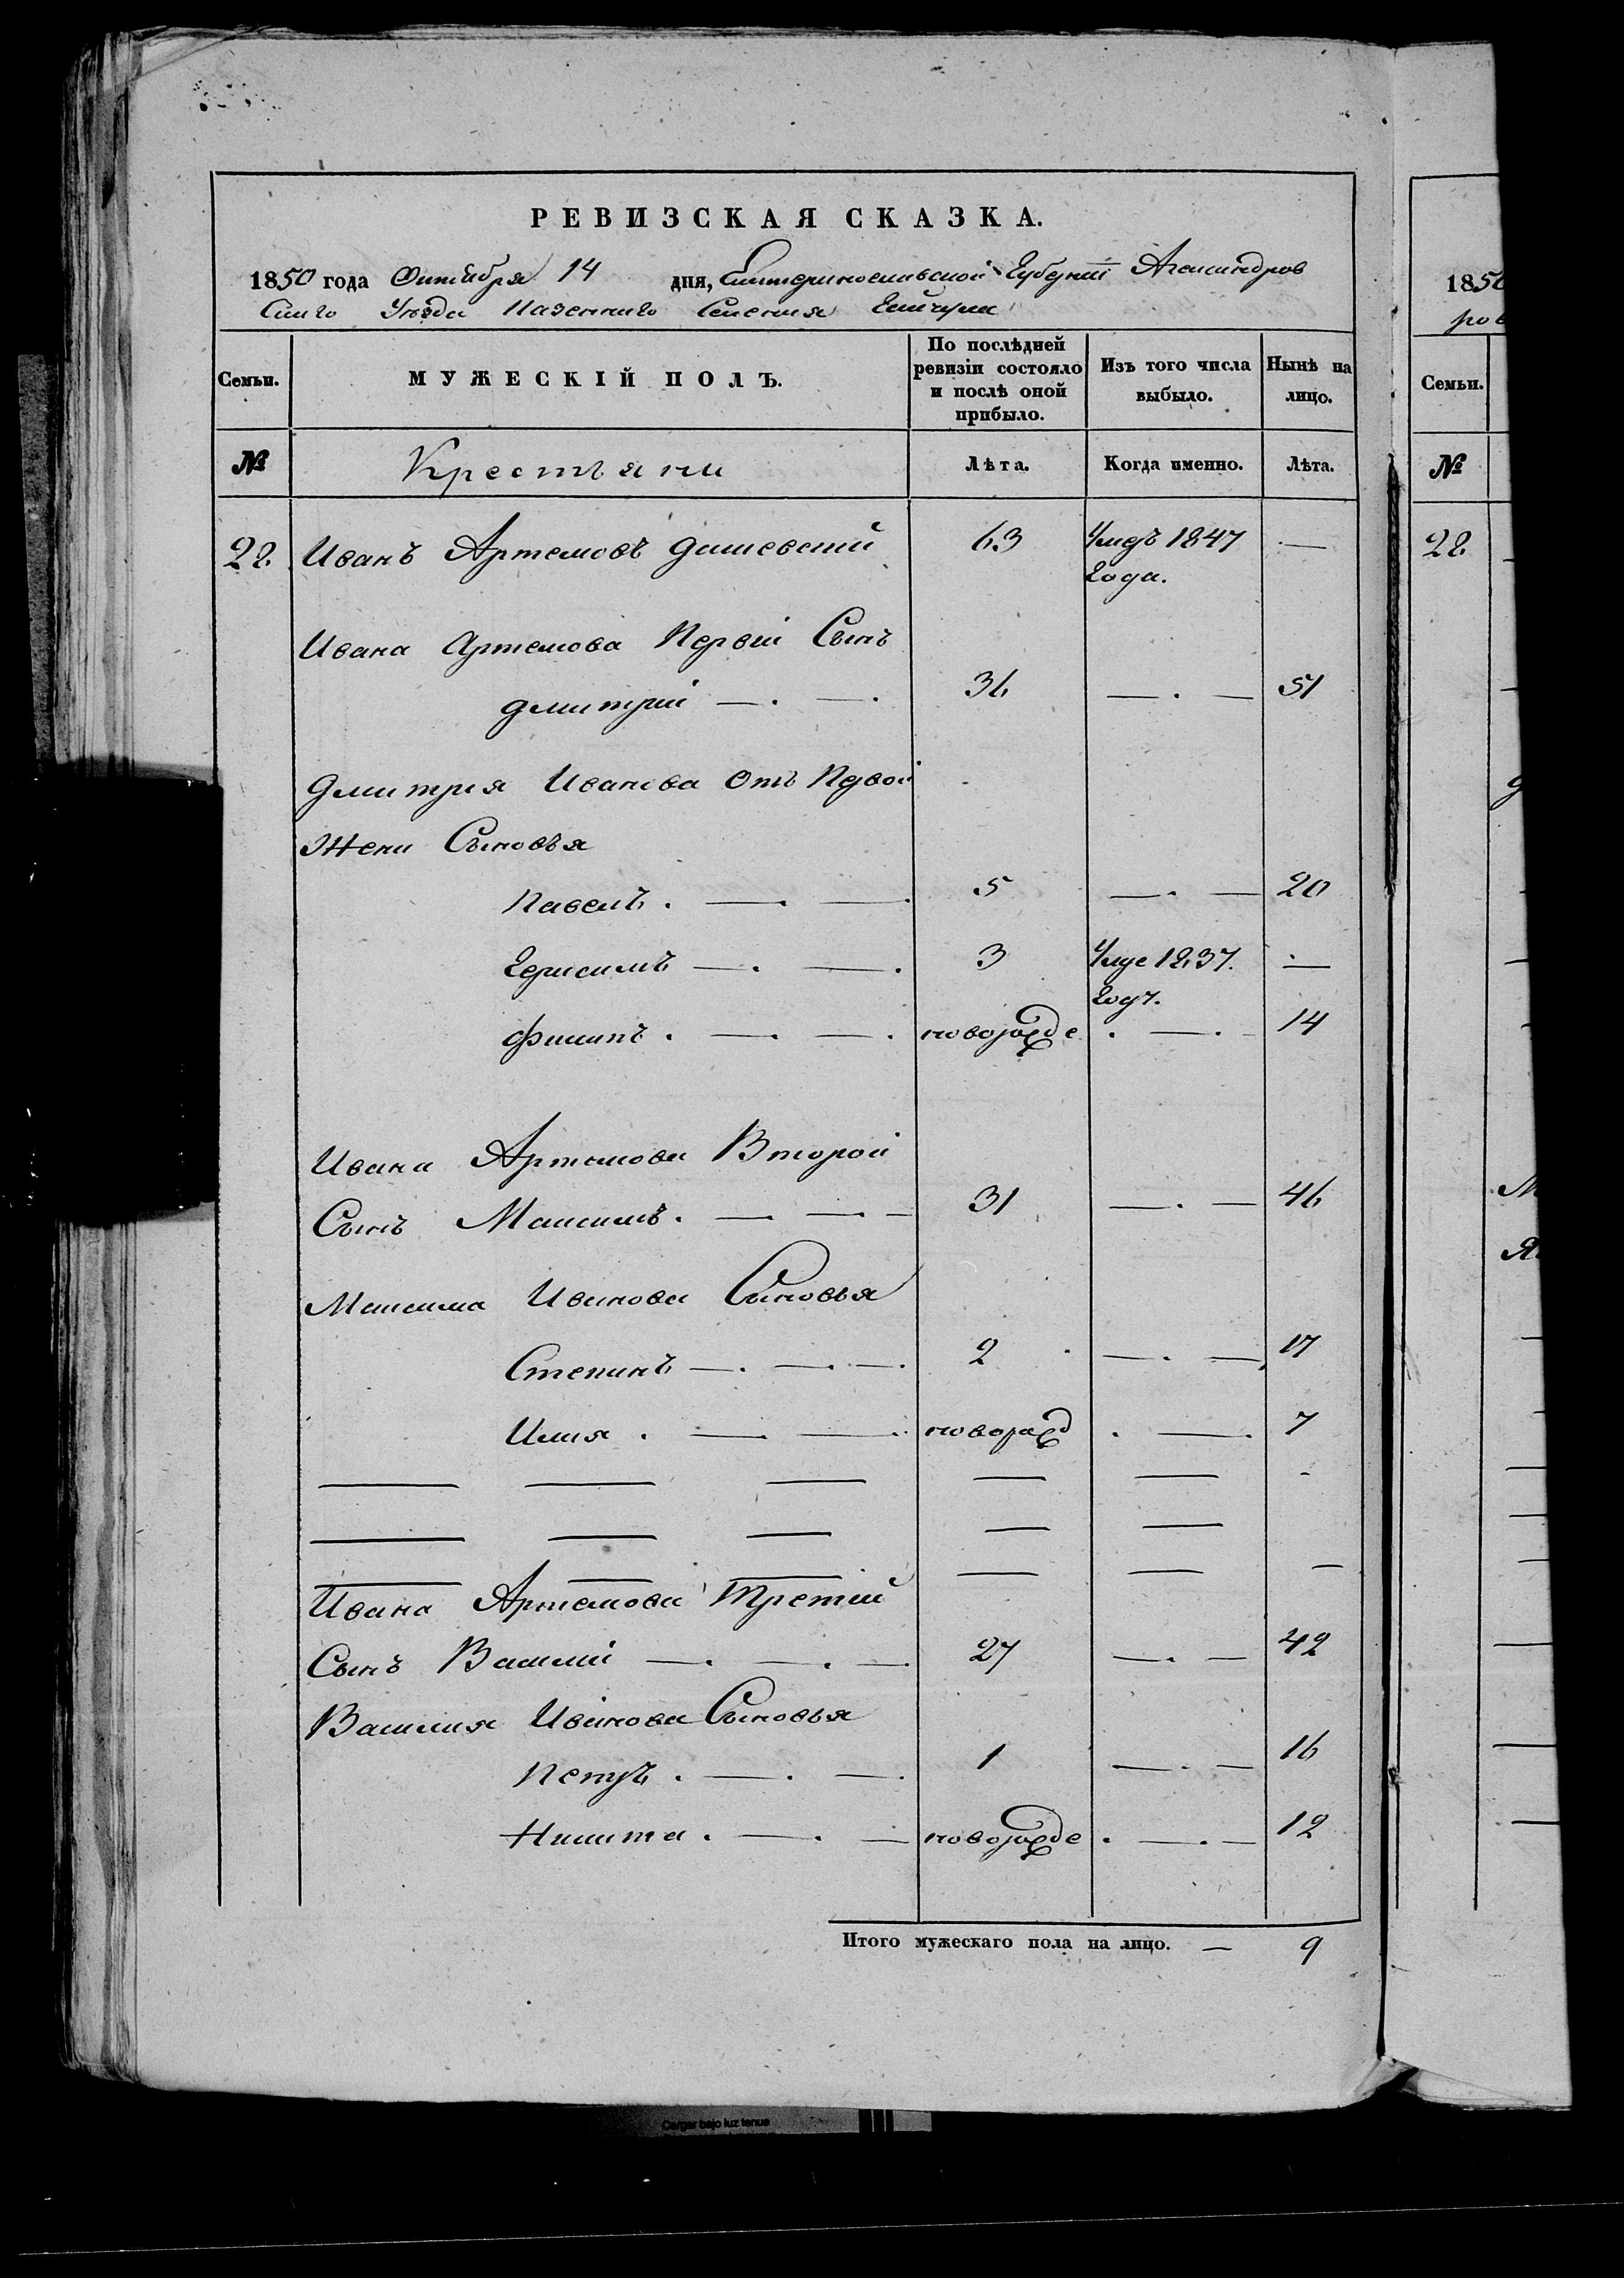 РЕВИЗСКАЯ СКАЗКА.
1850 года Октября 14 дня, Екатериносльвской Губерніи Александров
скаго Уезда Казеннаго Селения
Семьи. МУЖЕСКІЙ ПОЛЪ. По послѣдней ревизіи состояло и послѣ оной прибыло. Изъ того числа выбыло. Нынѣ на лицо.
№ Крестьяни Лѣта. Когда именно. Лѣта.
22 Иванъ Артемовъ Дашевский 63 Умеръ 1847 года. —
Ивана Артемова Первій Сынъ
Дмитрий —. —. 36 —. — 51
Дмитрия Иванова Отъ Первой
Жени Сыновья
Павелъ. —. —. 5 —. — 20
Герасимъ —. —. 3 Умре 1837. Году. —
Филипъ. —. —. новорожде. —. — 14
Ивана Артемова Второй
Сынъ Максимъ. —. —. — 31 —. — 46
Максима Иванова Сыновья
Степанъ —. —. —. 2 —. — 17
Илия. — —. новорожд. —. 7
Ивана Артемова Третий
Сынъ Василий —. —. —. 27 —. — 42
Василия Иванова Сыновья
Петръ. —. —. 1 —. — 16
Никита. —. — новорожде. —. — 12
Итого мужескаго пола на лицо. — 9
1850
ров
Семьи.
№
22
Cargar bajo luz tenue